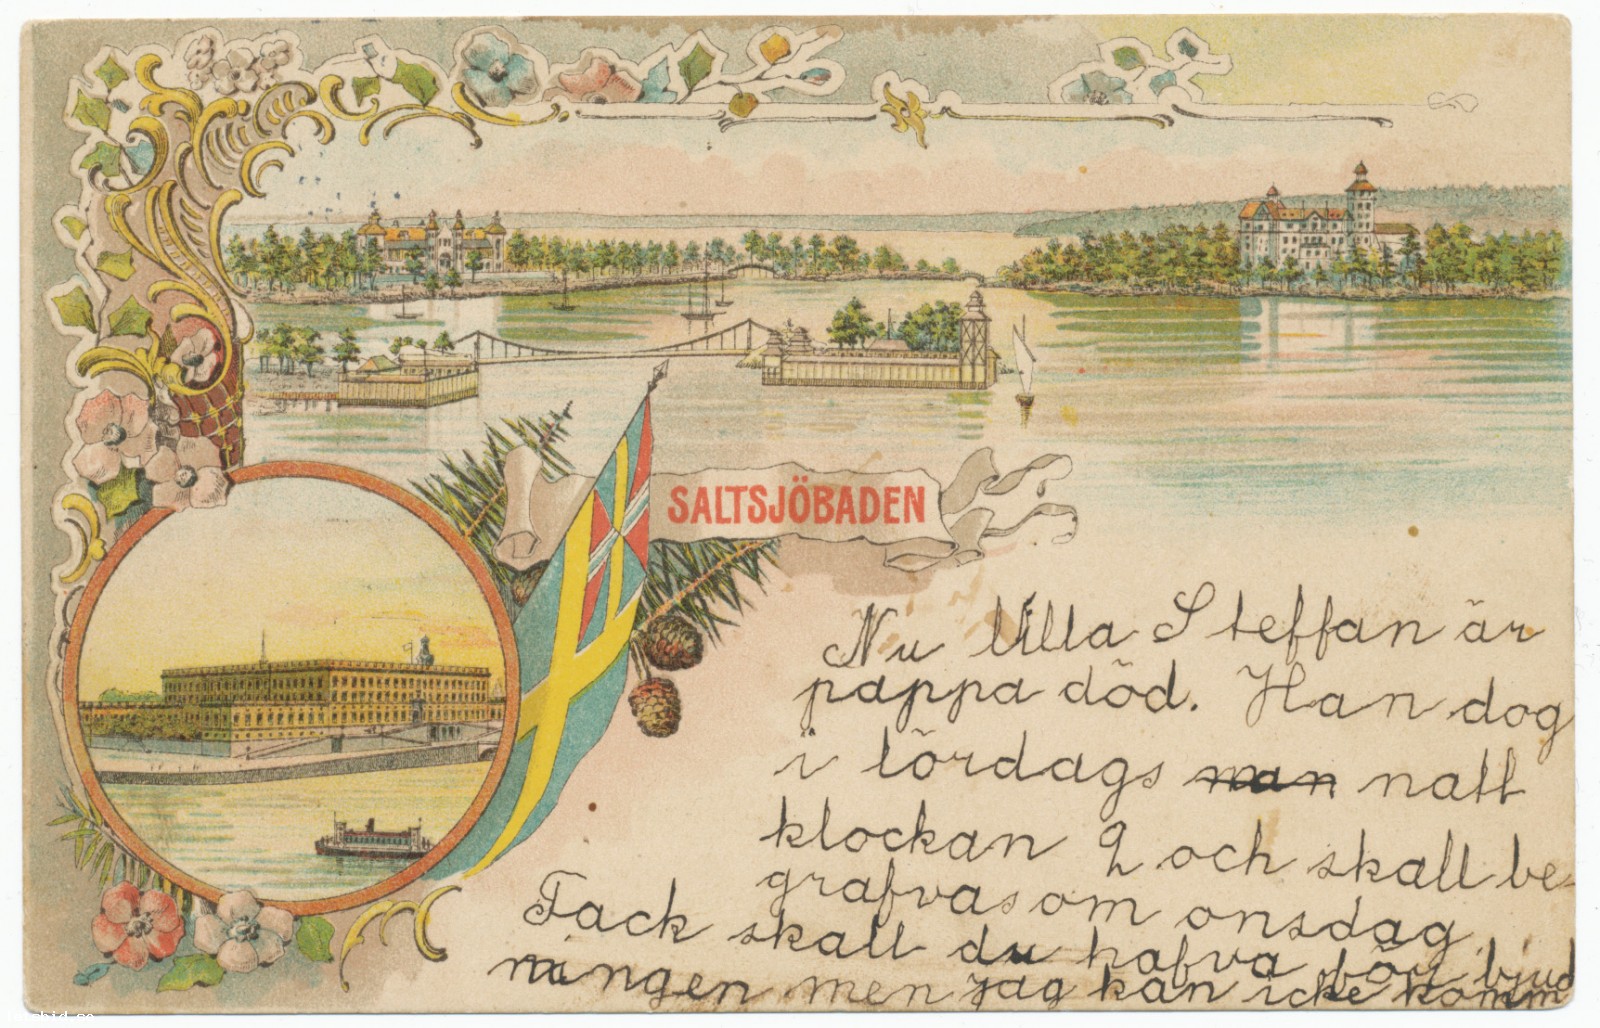 SALTSJÖBADEN
Nu lilla Steffan är
pappa död. Han dog
i lördags natt
klockan 2 och skall be-
grafvas om onsdag
Tack skall du hafva för bjud
ningen men jag kan icke komm